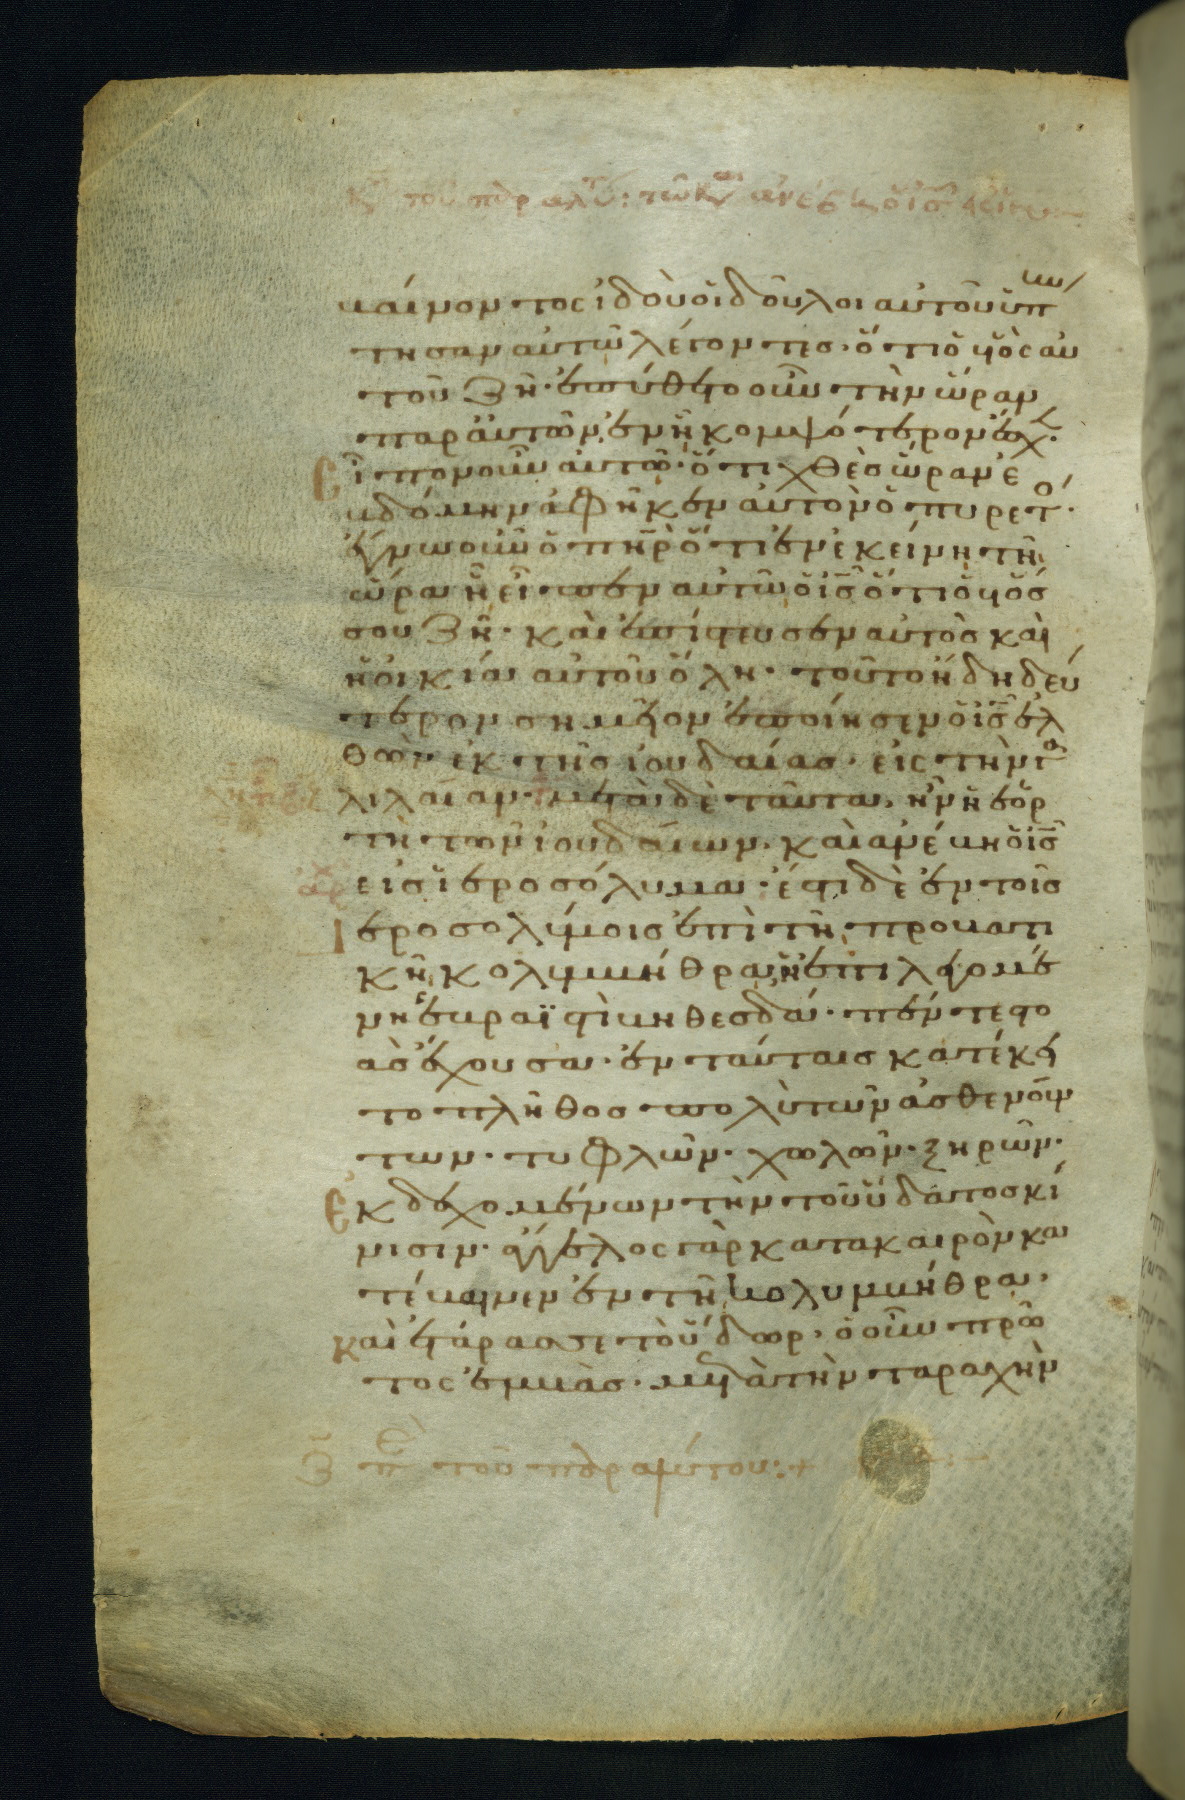 βαίνοντος ἰδοὺ οἱ δοῦλοι αὐτοῦ ὑπήν
τησαν αὐτῶ λέγοντες· ὅτι ὁ υἱὸς αὐ
τοῦ ζῆ· ἐπύθετο οὖν τὴν ὥραν
παρ αὐτῶν, ἐν ἧ κομψότερον ἔσχεν·
εἶπον οὖν αὐτῶ· ὅτι χθὲς ὥραν ἑ
βδόμην ἀφῆκεν αὐτὸν ὁ πυρετός·
ἔγνω οὖν ὁ πηρ ὅτι ἐν ἐκείνη τῆ
ὥρα ἧ εἶπεν αὐτῶ ὁ ις ὅτι ὁ υἱός
σου ζῆ· καὶ ἐπίστευσεν αὐτὸς καὶ
ἡ οἰκία αὐτοῦ ὅλη· τοῦτο ἤδη δεύ
τερον σημεῖον ἐποίησεν ὁ ις ἐλ
θὼν ἐκ τῆς ἰουδαίας· εἰς τὴν γα
λιλαίαν· μετὰ δὲ ταῦτα, ἦν ἡ ἑορ
τὴ τῶν ἰουδαίων· καὶ ἀνέβη ὁ ις
εἰς ἱεροσόλυμα· ἔστι δὲ ἐν τοῖς
Ἱεροσολύμοις ἐπὶ τῆ προβατι
κῆ κολυμβήθρα, ἡ ἐπιλεγομέ
νη ἑβραϊστὶ βηθεσδά· πέντε στο
ὰς ἔχουσα· ἐν ταύταις κατέκει
το πλῆθος πολὺ τῶν ἀσθενούν
των· τυφλῶν· χωλῶν· ξηρῶν·
Ἐκδεχομένων τὴν τοῦ ὕδατος κί
νησιν· ἄγγελος γὰρ κατα καιρὸν κα
τέβαινεν ἐν τῆ κολυμβήθρα·
καὶ ἐτάρασσε τὸ ὕδωρ· ὁ οὖν πρῶ
τος ἐμβὰς· μετὰ τὴν ταραχὴν
τοῦ παραλύτου